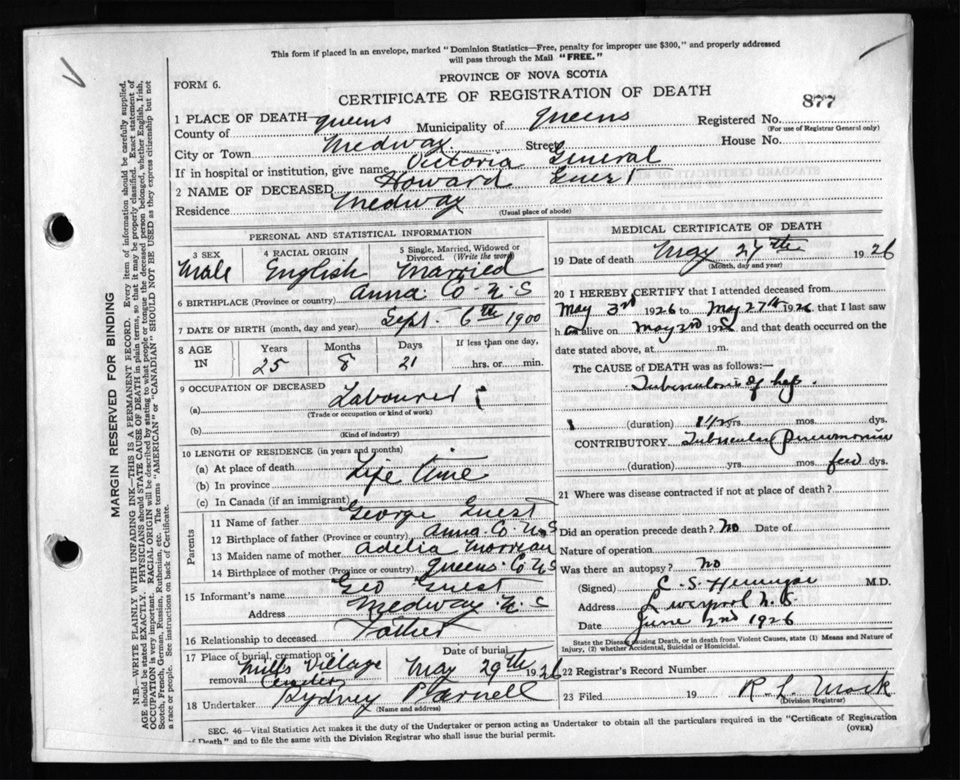 This form if placed in an envelope, marked "Dominion Statistics—Free, penalty for improper use $300," and properly addressed
will pass through the Mail "FREE."
PROVINCE OF NOVA SCOTIA
FORM 6.
CERTIFICATE OF REGISTRATION OF DEATH
877
1 PLACE OF DEATH— Queens
County of Municipality of Queens Registered No.
(For use of Registrar General only)
City or Town Medway Street House No.
If in hospital or institution, give name Victoria General
2 NAME OF DECEASED Howard Guest
Residence Medway
(Usual place of abode)
PERSONAL AND STATISTICAL INFORMATION
3 SEX 4 RACIAL ORIGIN 5 Single, Married, Widowed or
Divorced. (Write the word)
Male English Married
6 BIRTHPLACE (Province or country) Anna. Co N S
7 DATE OF BIRTH (month, day and year) Sept. 6th 1900
8 AGE IN Years Months Days If less than one day,
25 8 21 hrs. or min.
9 OCCUPATION OF DECEASED
(a) Labourer
(Trade or occupation or kind of work)
(b)
(Kind of industry)
10 LENGTH OF RESIDENCE (in years and months)
(a) At place of death Life time
(b) In province
(c) In Canada (if an immigrant)
Parents
11 Name of father George Guest
12 Birthplace of father (Province or country) Anna. Co. N S
13 Maiden name of mother Adelia
14 Birthplace of mother (Province or country) Queens Co N S
15 Informant's name Geo Guest
Address Medway N. S
16 Relationship to deceased Father
17 Place of burial, cremation or removal Date of burial
Mills Village May 29th 1926
18 Undertaker Sydney Parnell
(Name and address)
MEDICAL CERTIFICATE OF DEATH
19 Date of death May 27th 1926
(Month, day and year)
20 I HEREBY CERTIFY that I attended deceased from
May 3rd 1926 to May 27th 1926 that I last saw
h alive on May 1926 and that death occurred on the
date stated above, at m.
The CAUSE of DEATH was as follows:—
Tuberculosis of
(duration) 1 1/2 yrs. mos. dys.
CONTRIBUTORY Tubercular Pneumonia
(duration) yrs. mos. few dys.
21 Where was disease contracted if not at place of death?
Did an operation precede death? No Date of
Nature of operation
Was there an autopsy? no
(Signed) M.D.
Address Liverpool N.S.
Date June 2nd 1926
State the Disease causing Death, or in death from Violent Causes, state (1) Means and Nature of
Injury, (2) whether Accidental, Suicidal or Homicidal.
22 Registrar's Record Number
23 Filed 19 R. L. Mack
(Division Registrar)
SEC. 46—Vital Statistics Act makes it the duty of the Undertaker or person acting as Undertaker to obtain all the particulars required in the "Certificate of Registration
of Death" and to file the same with the Division Registrar who shall issue the burial permit.
(OVER)
MARGIN RESERVED FOR BINDING
N.B.—WRITE PLAINLY WITH UNFADING INK—THIS IS A PERMANENT RECORD. Every item of information should be carefully supplied.
AGE should be stated EXACTLY. PHYSICIANS should STATE CAUSE OF DEATH in plain terms, so that it may be properly classified. Exact statement of
OCCUPATION is very important. RACIAL ORIGIN will be described by stating to what people or tongue the deceased person belonged, whether English, Irish,
Scotch, French, German, Russian, Ruthenian, etc. The terms "AMERICAN" or "CANADIAN" SHOULD NOT BE USED as they express citizenship but not
a race or people. See instructions on back of Certificate.